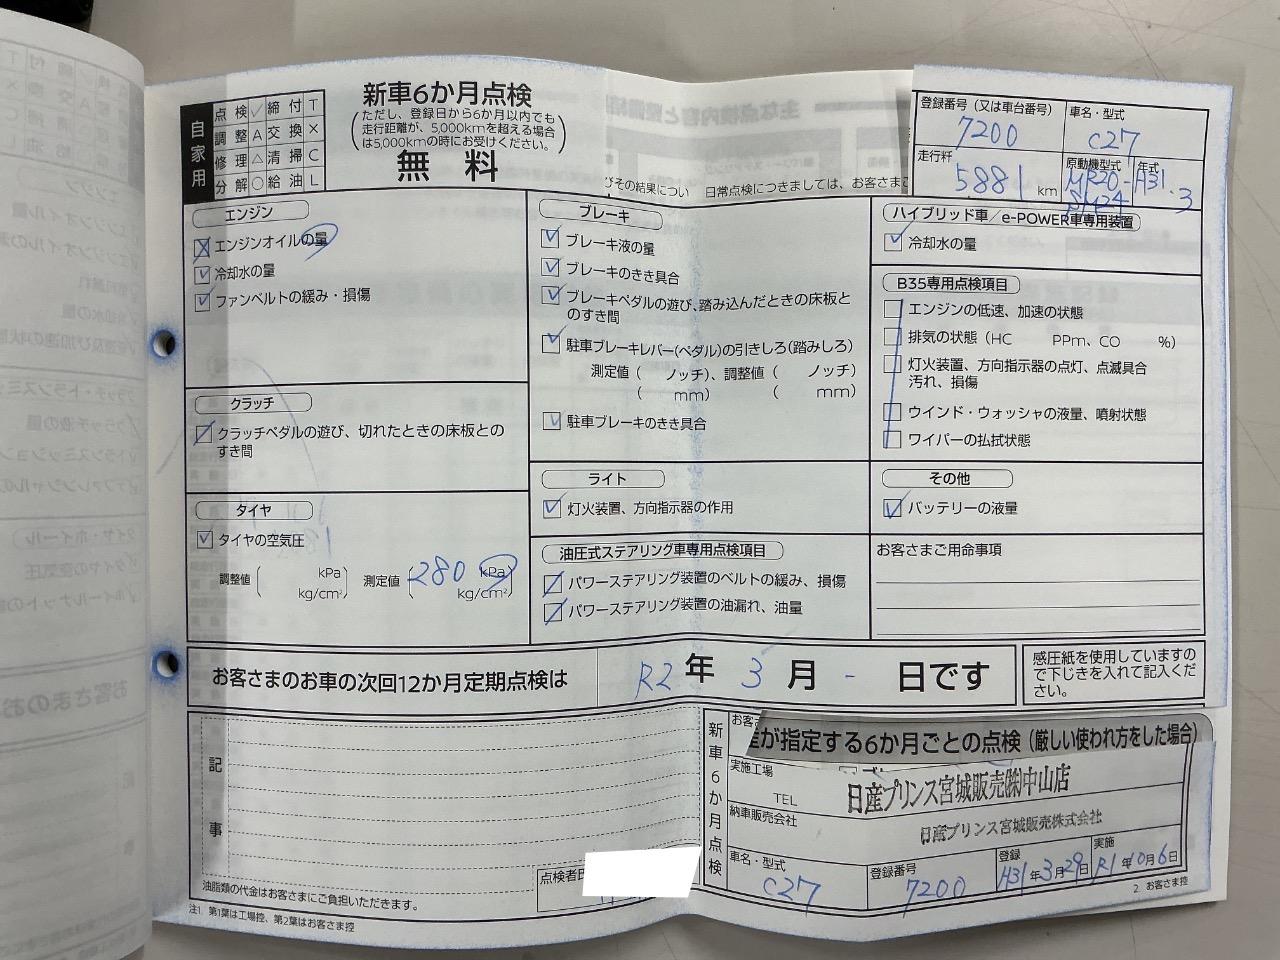 自家用
点検 ✓ 締付 T
調整 A 交換 ×
修理 △ 清掃 C
分解 ○ 給油 L
新車6か月点検
(ただし、登録日から6か月以内でも
走行距離が、5,000kmを超える場合
は5,000kmの時にお受けください。)
無料
主な点検内容と整備
びその結果につい
日常点検につきましては、お客さまご
登録番号(又は車台番号)
7200
車名・型式
C27
走行粁
5881 km
原動機型式
MR20-
SM24
年式
H31.3
エンジン
エンジンオイルの量
冷却水の量
ファンベルトの緩み・損傷
クラッチ
クラッチペダルの遊び、切れたときの床板との
すき間
タイヤ
タイヤの空気圧
調整値( kPa kg/cm²) 測定値(280 kPa kg/cm²)
ブレーキ
ブレーキ液の量
ブレーキのきき具合
ブレーキペダルの遊び、踏み込んだときの床板と
のすき間
駐車ブレーキレバー(ペダル)の引きしろ(踏みしろ)
測定値( ノッチ)、調整値( ノッチ)
( mm) ( mm)
駐車ブレーキのきき具合
ライト
灯火装置、方向指示器の作用
油圧式ステアリング車専用点検項目
パワーステアリング装置のベルトの緩み、損傷
パワーステアリング装置の油漏れ、油量
ハイブリッド車/e-POWER車専用装置
冷却水の量
B35専用点検項目
エンジンの低速、加速の状態
排気の状態(HC PPm、CO %)
灯火装置、方向指示器の点灯、点滅具合
汚れ、損傷
ウインド・ウォッシャの液量、噴射状態
ワイパーの払拭状態
その他
バッテリーの液量
お客さまご用命事項
お客さまのお車の次回12か月定期点検は
R2年3月-日です
感圧紙を使用していますの
で下じきを入れて記入くだ
さい。
記事
点検者
油脂類の代金はお客さまにご負担いただきます。
注1. 第1葉は工場控、第2葉はお客さま控
新車6か月点検
お客さ
産が指定する6か月ごとの点検(厳しい使われ方をした場合)
実施工場
TEL
日産プリンス宮城販売㈱中山店
納車販売会社
日産プリンス宮城販売株式会社
車名・型式
C27
登録番号
7200
登録
H31年3月29日
実施
R1年10月6日
2. お客さま控